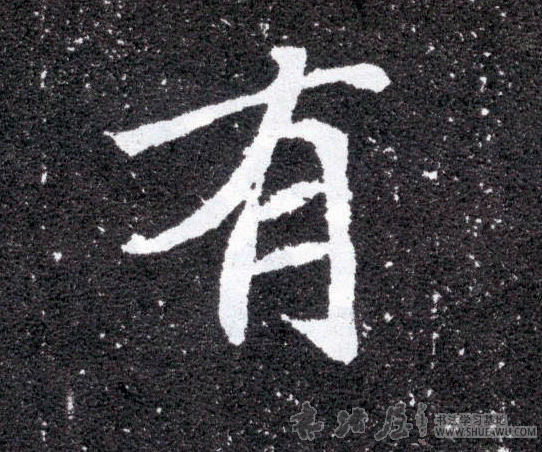 有
书法屋
书法学习基地
WWW.SHUFAWU.COM